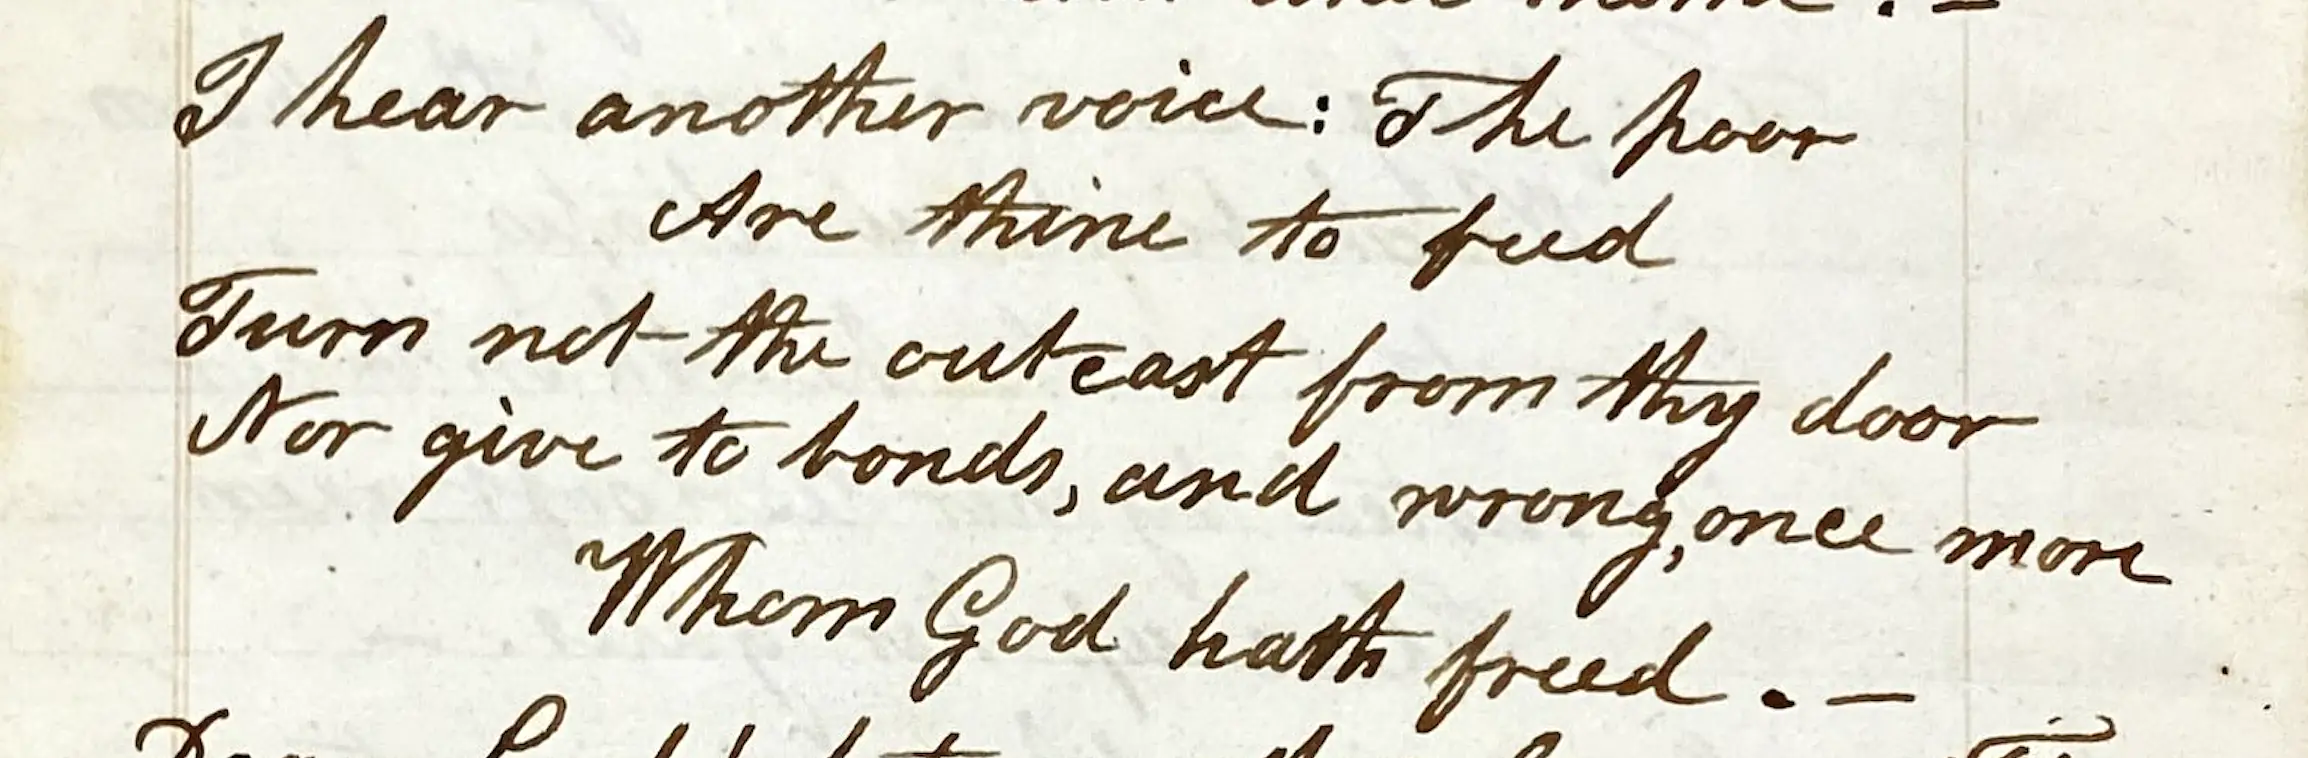 I hear another voice: The poor
Are thine to feed
Turn not the outcast from thy door
Nor give to bonds, and wrong, once more
Whom God hath freed. —